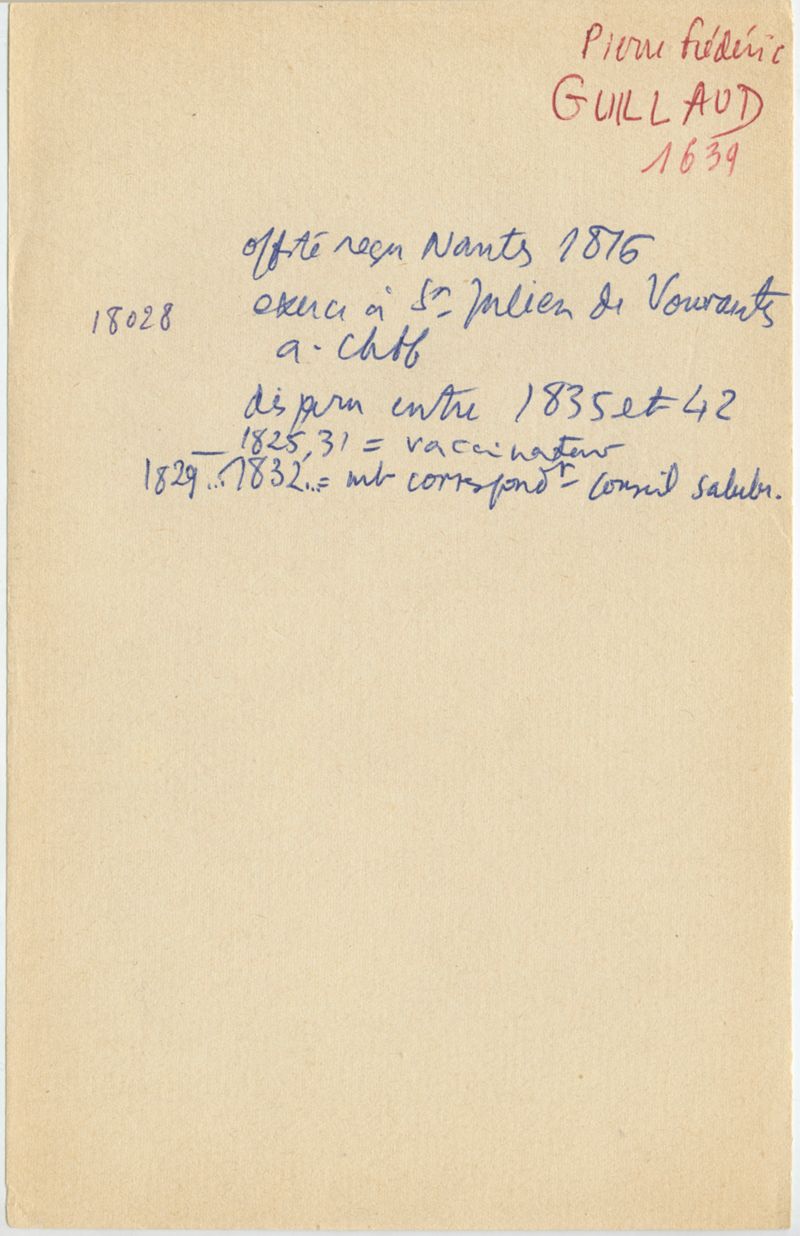 Pierre frédéric
GUILLAUD
1639
offté reçu Nantes 1816
18028 exerce à St Julien de Vouvantes
a. Chtb
disparu entre 1835 et 42
— 1825, 31 = vaccinateur
1829...1832... = mb correspondt Conseil salubr.